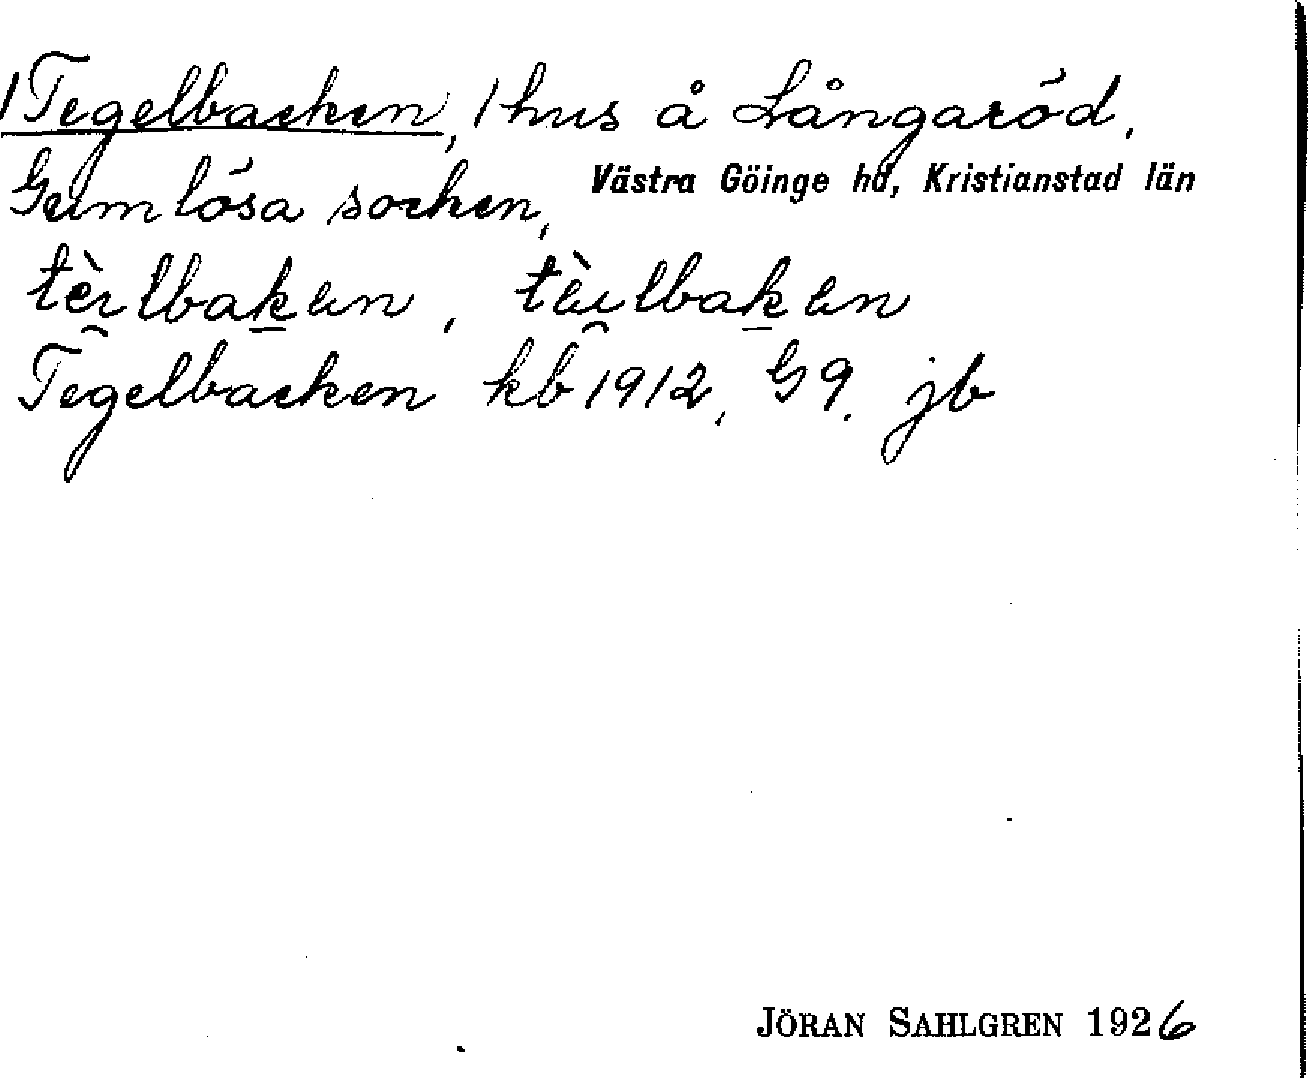 1 Tegelbacken, 1 hus å Långaröd,
Gumlösa socken, Västra Göinge hd, Kristianstad län
Tegelbacken kb 1912, G9. jb
JÖRAN SAHLGREN 1926